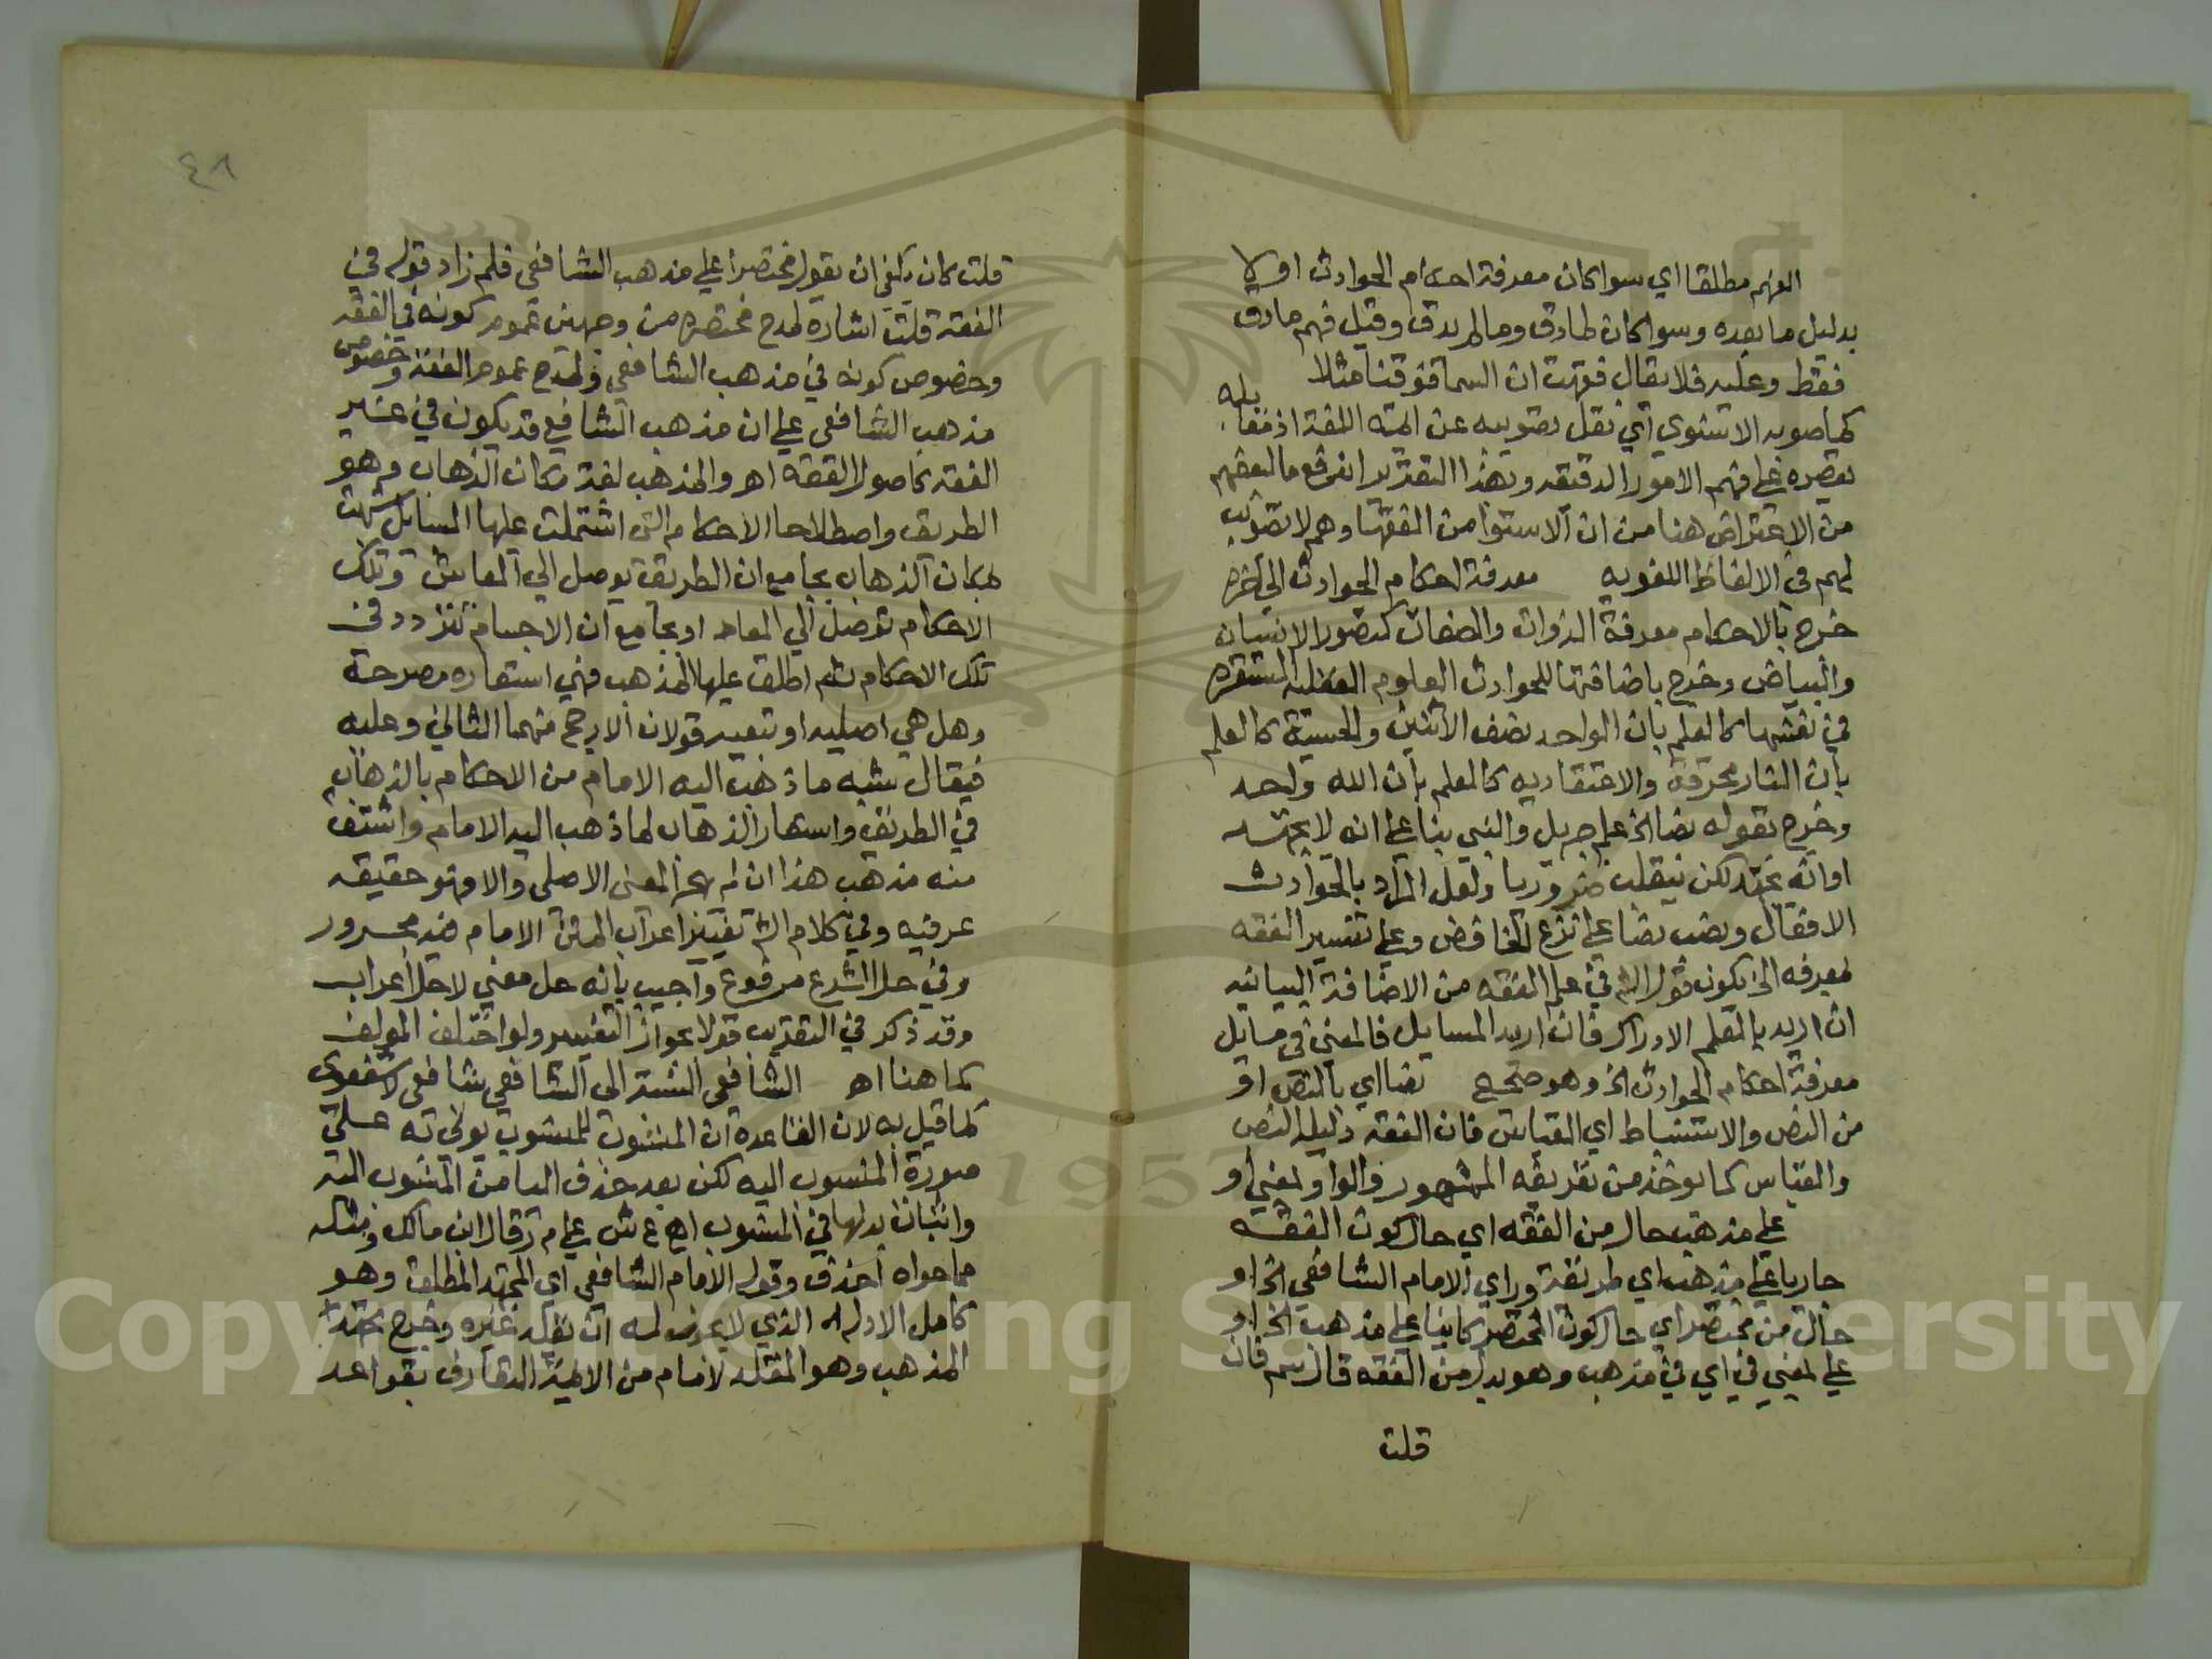 الفهم مطلقا اي سوا كان معرفة احكام الحوادث اولا
بدليل ما بعده وسوا كان لما دق وما لم يدق وقيل فهم ما دق
فقط وعليه فلا يقال فقهت ان السما فوقنا مثلا
كما صوبه الاسنوي اي نقل تصويبه عن ايمة اللغة اذ مقابله
يقصره علي فهم الامور الدقيقه وبهذا التقرير اندفع ما لبعضهم
من الاعتراض هنا من ان الاسنوا من الفقها وهم لا تصويب
لهم في الالفاظ اللغويه معرفة احكام الحوادث الي اخره
خرج بالاحكام معرفة الذوات والصفات كتصور الانسان
والبياض وخرج باضافتها للحوادث العلوم العقليه المستقره
في نفسها كالعلم بان الواحد نصف الاثنين والحسية كالعلم
بان النار محرقة والاعتقاديه كالعلم بان الله واحد
وخرج بقوله نصا الخ علم جبريل والنبي بنا علي انه لا يجتهد
او انه يجتهد لكن ينقلب ضروريا ولعل المراد بالحوادث
الافعال ونصب نصا علي نزع الخافض وعلي تفسير الفقه
بمعرفه الخ يكون قول الش في علم الفقه من الاضافة البيانيه
ان اريد بالعلم الادراك فان اريد المسايل فالمعني في مسايل
معرفة احكام الحوادث الخ وهو صحيح نصا اي بالنص او
من النص والاستنباط اي القياس فان الفقه دليله النص
والقياس كما يوخذ من تعريفه المشهور والواو بمعني او
علي مذهب حال من الفقه اي حال كون الفقه
جاريا علي مذهب اي طريقة وراي الامام الشافعي الخ او
حال من مختصر اي حال كون المختصر كاينا علي مذهب الخ او
علي بمعني في اي في مذهب وهو بدل من الفقه قال سم فان
قلت
٤٨
قلت كان يكفي ان يقول مختصرا علي مذهب الشافعي فلم زاد قوله في
الفقه قلت اشاره لمدح مختصره من وجهين عموم كونه في الفقه
وخصوص كونه في مذهب الشافعي ولمدح عموم الفقه وخصوص
مذهب الشافعي علي ان مذهب الشافعي قد يكون في غير
الفقه كاصول الفقه اهـ والمذهب لغة مكان الذهاب وهو
الطريق واصطلاحا الاحكام التي اشتملت عليها المسايل شبهت
بمكان الذهاب بجامع ان الطريق يوصل الي المعاش وتلك
الاحكام توصل الي المعاد او بجامع ان الاجسام تتردد في
تلك الاحكام ثم اطلق عليها المذهب فهي استعاره مصرحة
وهل هي اصليه او تبعيه قولان الارجح منهما الثاني وعليه
فيقال شبه ما ذهب اليه الامام من الاحكام بالذهاب
في الطريق واستعار الذهاب لما ذهب اليه الامام واشتق
منه مذهب هذا ان لم يهجر المعني الاصلي والا فهو حقيقه
عرفيه وفي كلام الش تغيير اعراب المتن الامام فيه مجرور
وفي حل الشرع مرفوع واجيب بانه حل معني لا حل اعراب
وقد ذكر في التقريب قولا بجواز التغيير ولو اختلف المولف
كما هنا اهـ الشافعي النسبة الي الشافعي شافعي لا شفعوي
كما قيل به لان القاعدة ان المنسوب للمنسوب يوتي به علي
صورة المنسوب اليه لكن بعد حذف اليا من المنسوب اليه
واثبات بدلها في المنسوب اهـ ع ش علي م ر قال ابن مالك ومثله
مما حواه احذف وقوله الامام الشافعي اي المجتهد المطلق وهو
كامل الادله الذي لا يجوز له ان يقلد غيره وخرج مجتهد
المذهب وهو المقلد لامام من الايمة العارف بقواعد